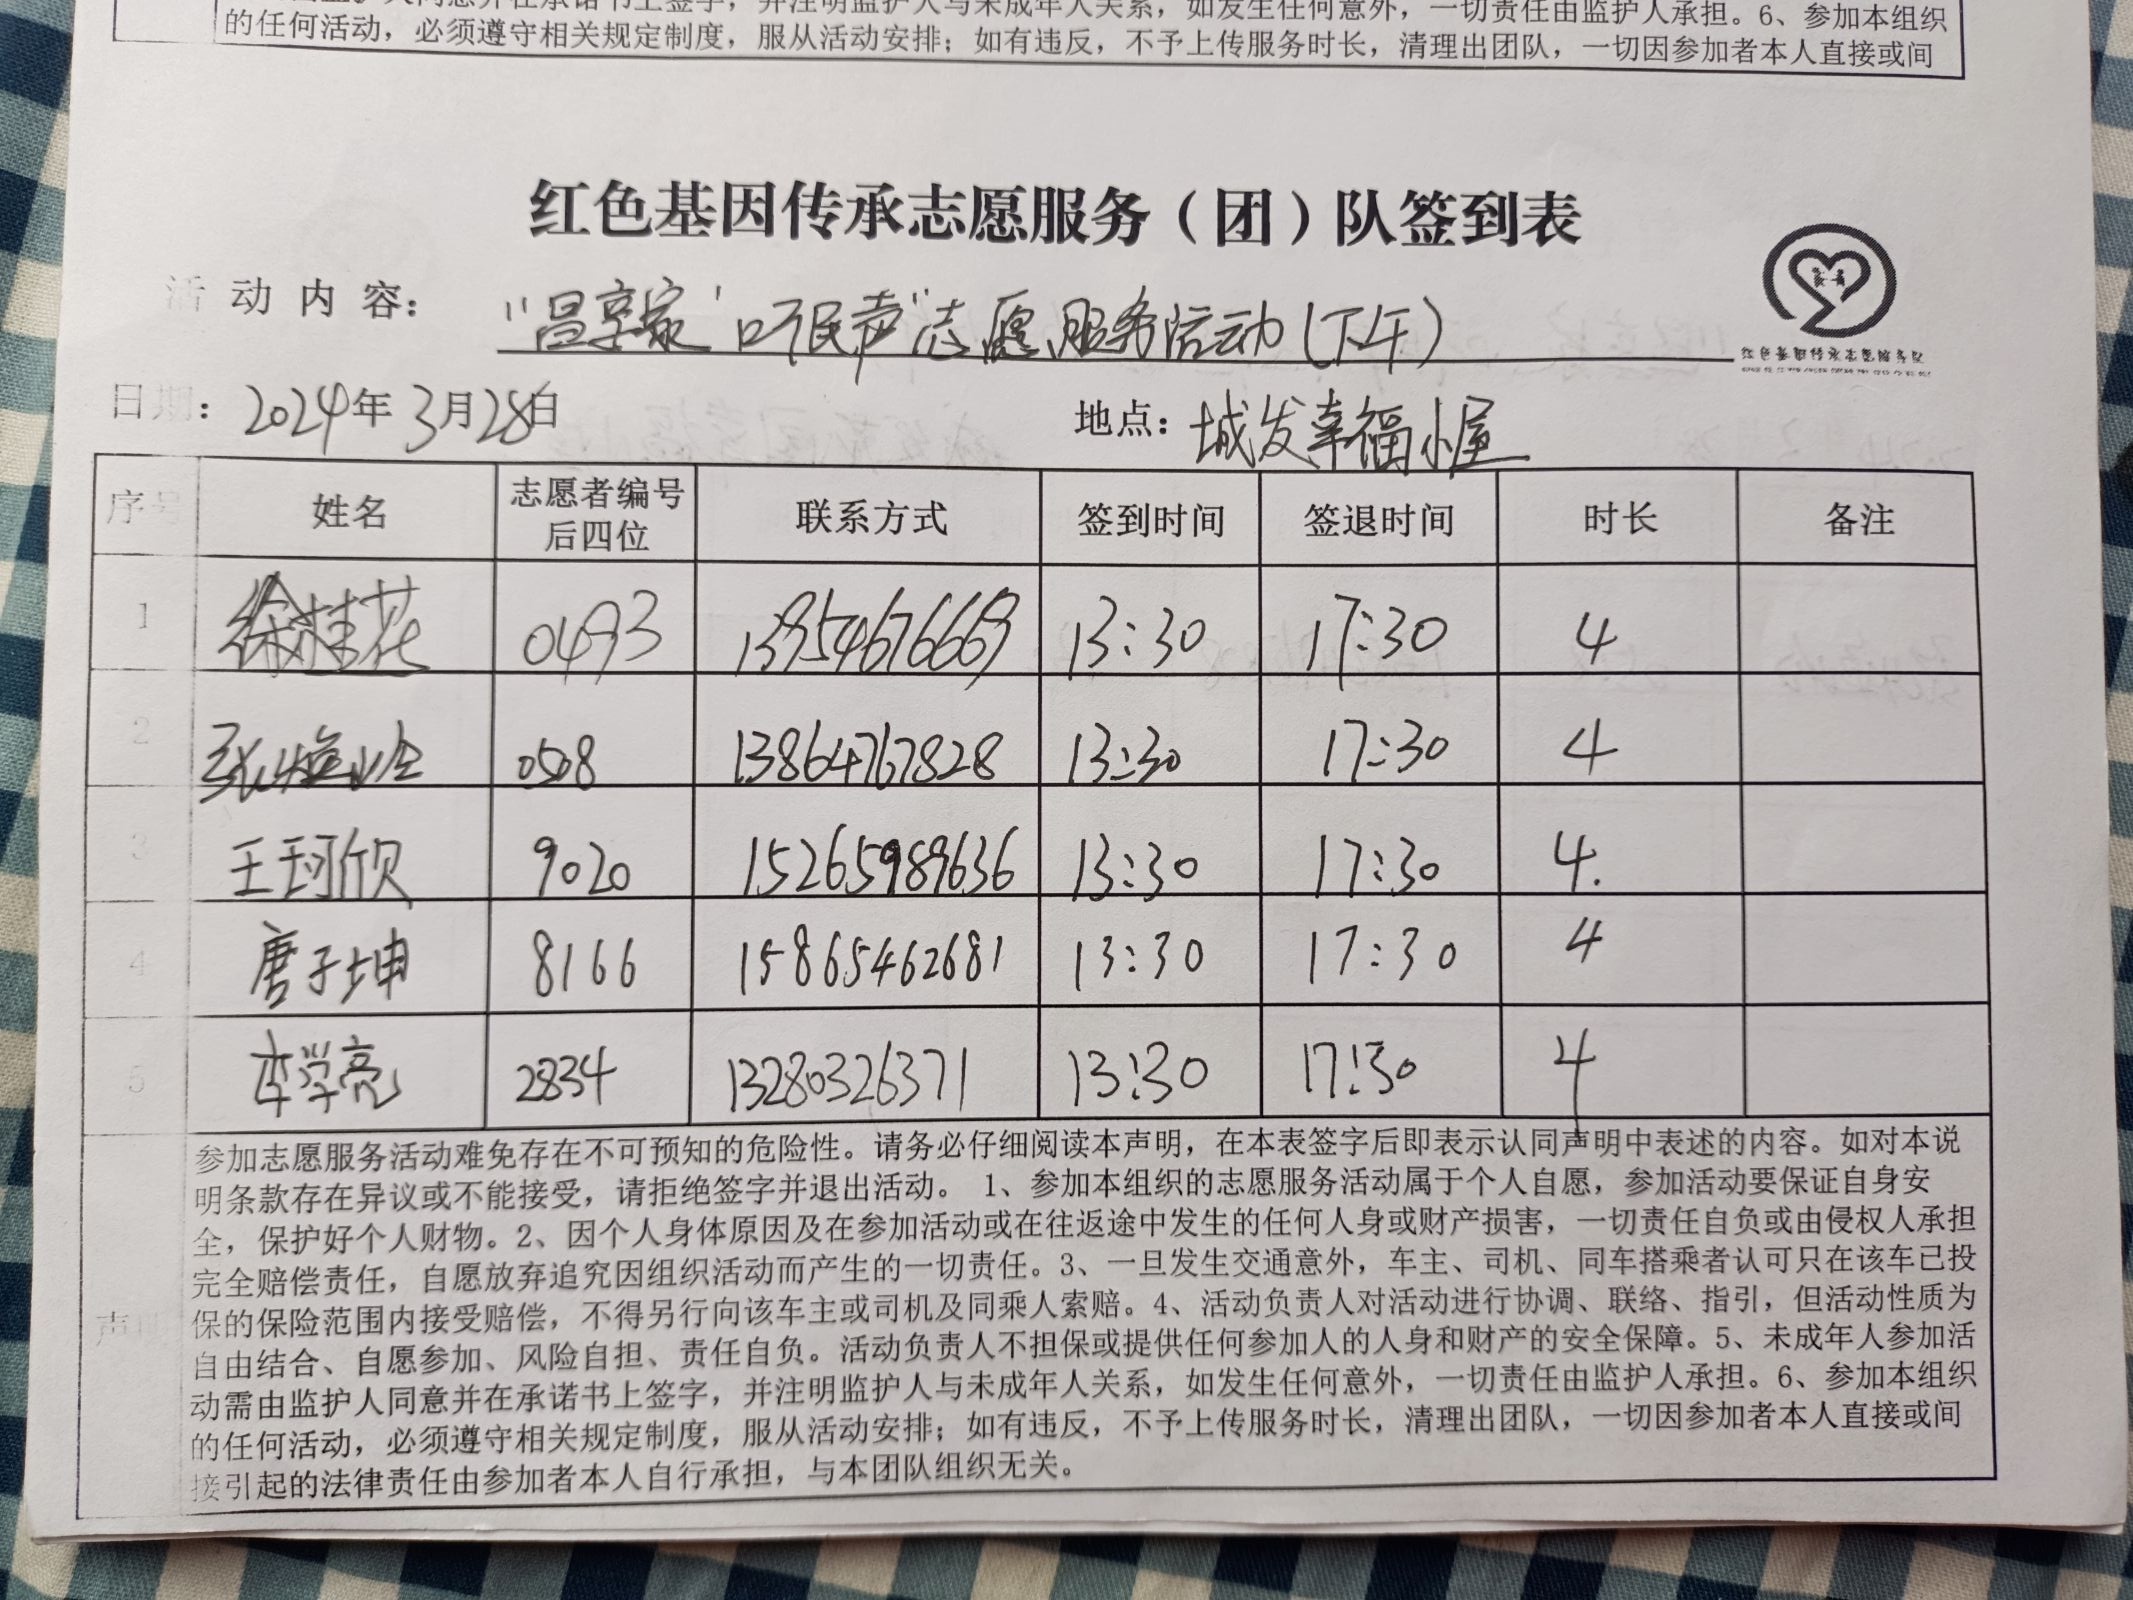 的任何活动，必须遵守相关规定制度，服从活动安排；如有违反，不予上传服务时长，清理出团队，一切因参加者本人直接或间
红色基因传承志愿服务（团）队签到表
活动内容： "温享家"听民声"志愿服务活动(下午)
红色基因传承志愿服务队
日期：2024年3月28日 地点：城发幸福小屋
序号 姓名 志愿者编号后四位 联系方式 签到时间 签退时间 时长 备注
1 徐桂花 0493 13954676669 13:30 17:30 4
2 张 0508 13864767828 13:30 17:30 4
3 王珂欣 9020 15265989636 13:30 17:30 4.
4 唐子坤 8166 15865462681 13:30 17:30 4
5 李学亮 2834 13280326371 13:30 17:30 4
参加志愿服务活动难免存在不可预知的危险性。请务必仔细阅读本声明，在本表签字后即表示认同声明中表述的内容。如对本说
明条款存在异议或不能接受，请拒绝签字并退出活动。 1、参加本组织的志愿服务活动属于个人自愿，参加活动要保证自身安
全，保护好个人财物。2、因个人身体原因及在参加活动或在往返途中发生的任何人身或财产损害，一切责任自负或由侵权人承担
完全赔偿责任，自愿放弃追究因组织活动而产生的一切责任。3、一旦发生交通意外，车主、司机、同车搭乘者认可只在该车已投
声明 保的保险范围内接受赔偿，不得另行向该车主或司机及同乘人索赔。4、活动负责人对活动进行协调、联络、指引，但活动性质为
自由结合、自愿参加、风险自担、责任自负。活动负责人不担保或提供任何参加人的人身和财产的安全保障。5、未成年人参加活
动需由监护人同意并在承诺书上签字，并注明监护人与未成年人关系，如发生任何意外，一切责任由监护人承担。6、参加本组织
的任何活动，必须遵守相关规定制度，服从活动安排；如有违反，不予上传服务时长，清理出团队，一切因参加者本人直接或间
接引起的法律责任由参加者本人自行承担，与本团队组织无关。